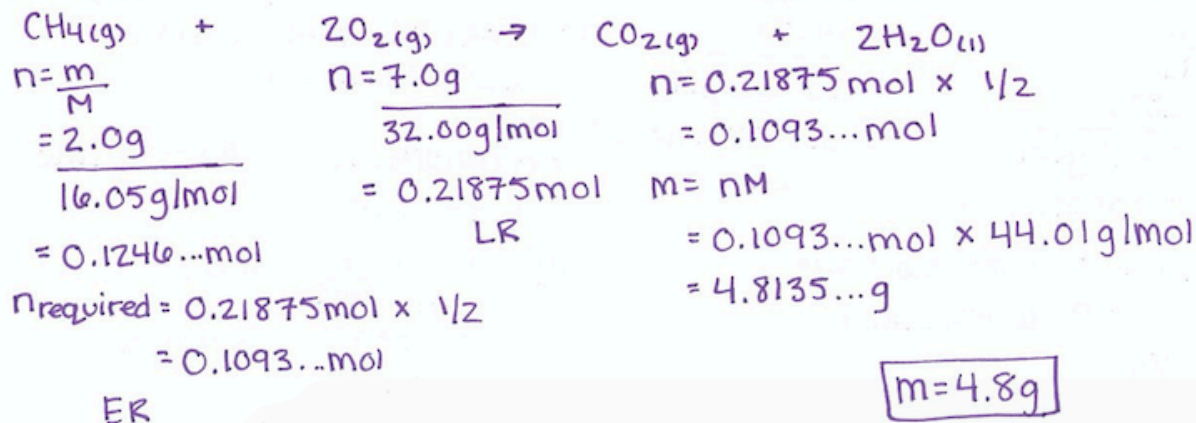 CH4(g) + 2O2(g) → CO2(g) + 2H2O(l)
n = m/M
= 2.0g / 16.05g/mol
= 0.1246...mol
nrequired = 0.21875mol x 1/2
= 0.1093...mol
ER
n = 7.0g / 32.00g/mol
= 0.21875mol
LR
n = 0.21875mol x 1/2
= 0.1093...mol
m = nM
= 0.1093...mol x 44.01g/mol
= 4.8135...g
m = 4.8g